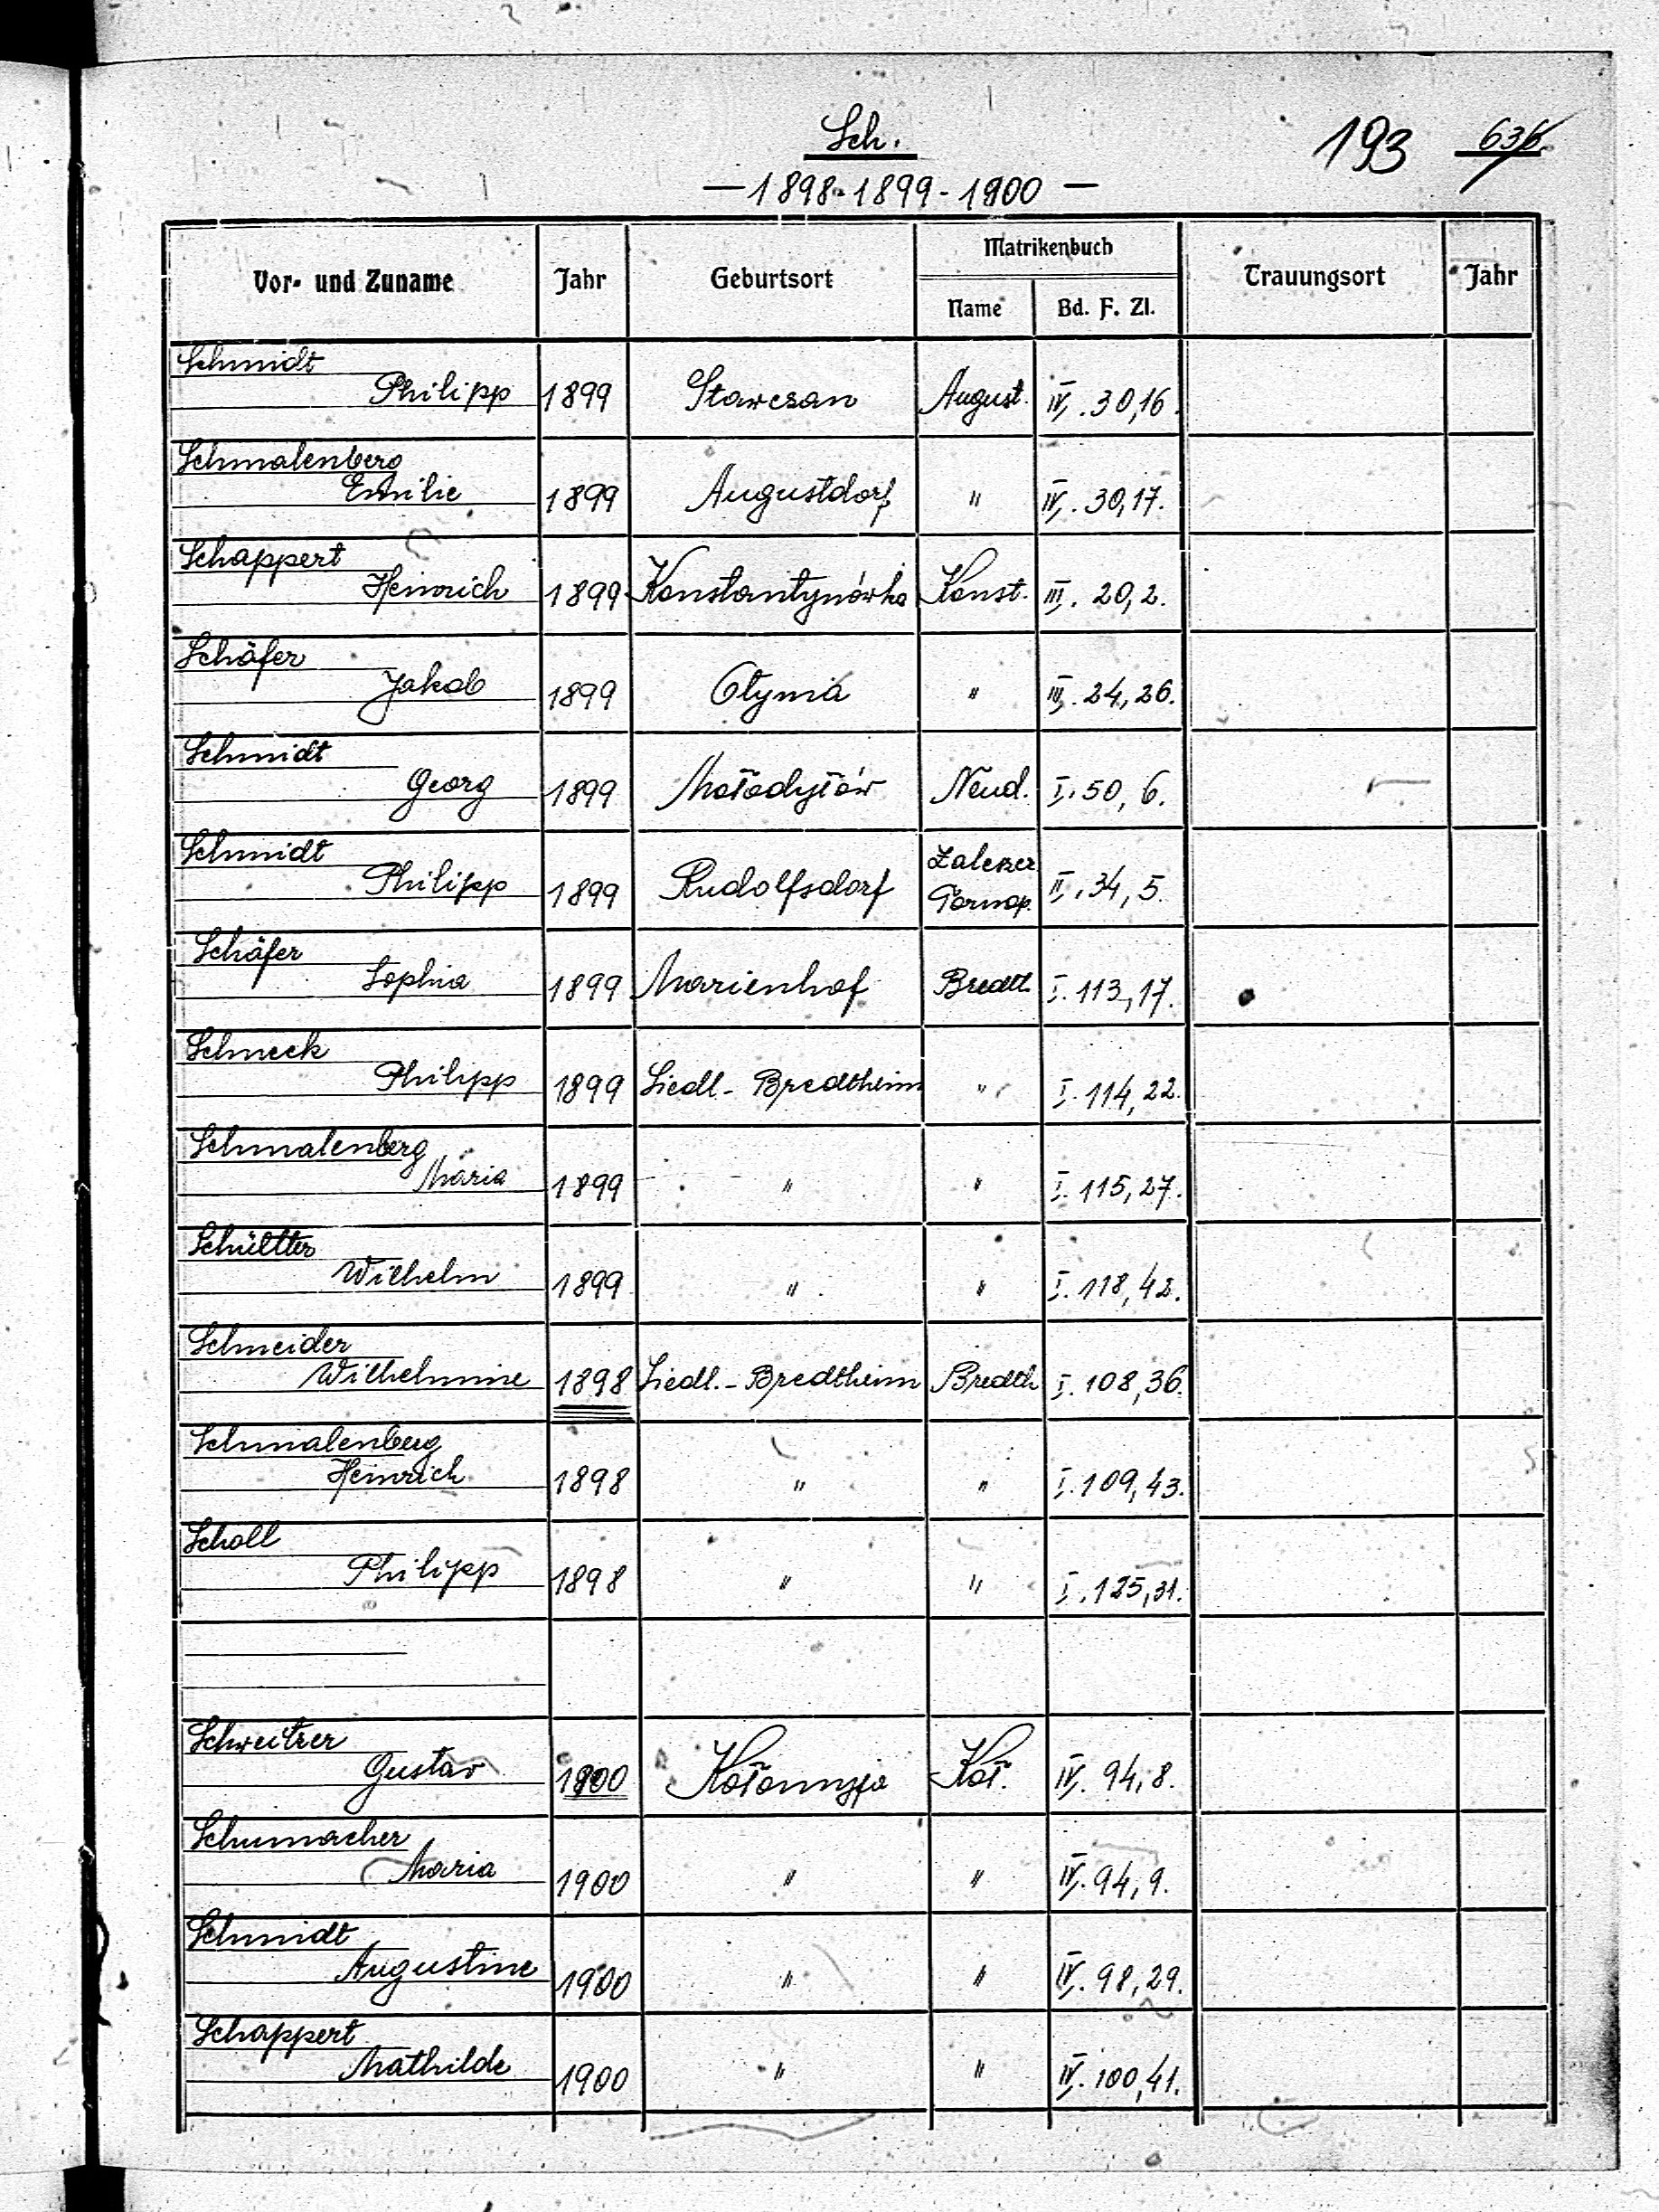 Sch.
193 636
— 1898-1899-1900 —
Vor- und Zuname Jahr Geburtsort Matrikenbuch Trauungsort Jahr
Name Bd. F. Zl.
Schmidt
Philipp 1899 Stawczan August. IV. 30,16.
Schmalenberg
Emilie 1899 Augustdorf " IV. 30,17.
Schappert
Heinrich 1899 Konstantynówka Konst. III. 20,2.
Schäfer
Jakob 1899 Otynia " III. 24,26.
Schmidt
Georg 1899 Mołodyłów Neud. I. 50, 6.
Schmidt
Philipp 1899 Rudolfsdorf Zaleszcz. Tarnop. II. 34, 5.
Schäfer
Sophia 1899 Marienhof Bredth. I. 113, 17.
Schmeck
Philipp 1899 Siedl.- Bredtheim " I. 114, 22.
Schmalenberg
Maria 1899 " " I. 115, 27.
Schültter
Wilhelm 1899 " " I. 118, 42.
Schneider
Wilhelmine 1898 Siedl.- Bredtheim Bredth I. 108, 36.
Schmalenberg
Heinrich 1898 " " I. 109, 43.
Scholl
Philipp 1898 " " I. 125, 31.
Schweitzer
Gustav 1900 Kołomyja Koł. IV. 94, 8.
Schumacher
Maria 1900 " " IV. 94, 9.
Schmidt
Augustine 1900 " " IV. 98, 29.
Schappert
Mathilde 1900 " " IV. 100, 41.